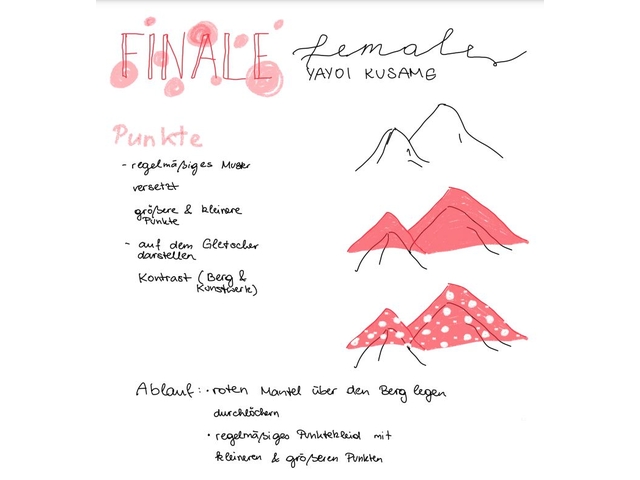 FINALE
females
YAYOI KUSAMG
Punkte
- regelmäßiges Muster
versetzt
größere & kleinere
Punkte
- auf dem Gletscher
darstellen
Kontrast (Berg &
Kunstwerk)
Ablauf: • roten Mantel über den Berg legen
durchlöchern
• regelmäßiges Punktekleid mit
kleineren & größeren Punkten